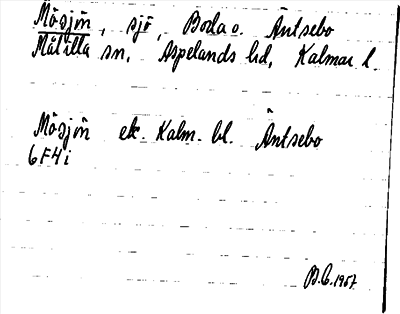 Mösjön, sjö, Boda o. Äntsebo
Målilla sn, Aspelands hd, Kalmar l.
Mösjön ek. Kalm. bl. Äntsebo
6F4i
B.C. 1957